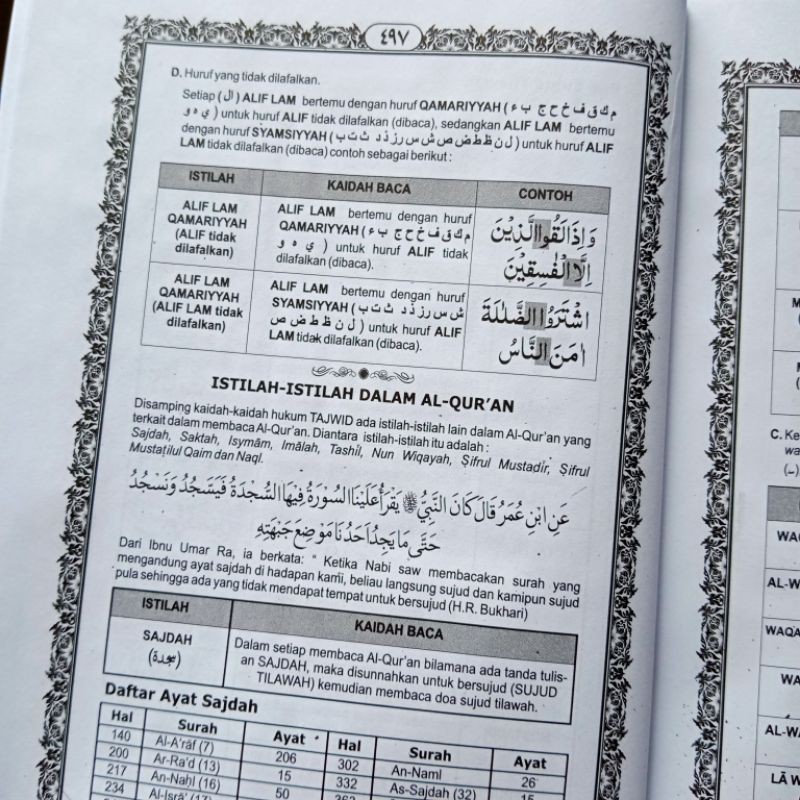 ٤٩٧
D. Huruf yang tidak dilafalkan.
Setiap ( ال ) ALIF LAM bertemu dengan huruf QAMARIYYAH ( م ك ق ف غ ع خ ح ج ب ء
ي ه و ) untuk huruf ALIF tidak dilafalkan (dibaca), sedangkan ALIF LAM bertemu
dengan huruf SYAMSIYYAH ( ل ن ظ ط ض ص ش س ز ر ذ د ث ت ) untuk huruf ALIF
LAM tidak dilafalkan (dibaca) contoh sebagai berikut :
ISTILAH
KAIDAH BACA
CONTOH
ALIF LAM
QAMARIYYAH
(ALIF tidak
dilafalkan)
ALIF LAM bertemu dengan huruf
QAMARIYYAH
ي ه و ) untuk huruf ALIF tidak
dilafalkan (dibaca).
وَاِذَا لَقُوا الَّذِيْنَ
اِلَّا الْفٰسِقِيْنَ
ALIF LAM
QAMARIYYAH
(ALIF LAM tidak
dilafalkan)
ALIF LAM bertemu dengan huruf
SYAMSIYYAH
ل ن ظ ط ض ص ) untuk huruf ALIF
LAM tidak dilafalkan (dibaca).
اشْتَرَوُا الضَّلٰلَةَ
اٰمَنَ النَّاسُ
ISTILAH-ISTILAH DALAM AL-QUR'AN
Disamping kaidah-kaidah hukum TAJWID ada istilah-istilah lain dalam Al-Qur'an yang
terkait dalam membaca Al-Qur'an. Diantara istilah-istilah itu adalah :
Sajdah, Saktah, Isymâm, Imâlah, Tashil, Nun Wiqayah, Şifrul Mustadir, Şifrul
Mustaţilul Qaim dan Naql.
عَنِ ابْنِ عُمَرُ قَالَ كَانَ النَّبِيُّ ﷺ يَقْرَأُ عَلَيْنَا السُّوْرَةُ فِيْهَا السَّجْدَةُ فَيَسْجُدُ وَنَسْجُدُ
حَتَّى مَا يَجِدُ اَحَدُنَا مَوْضِعَ جَبْهَتِهِ
Dari Ibnu Umar Ra, ia berkata: " Ketika Nabi saw membacakan surah yang
mengandung ayat sajdah di hadapan kami, beliau langsung sujud dan kamipun sujud
pula sehingga ada yang tidak mendapat tempat untuk bersujud (H.R. Bukhari)
ISTILAH
KAIDAH BACA
SAJDAH
(سجدة)
Dalam setiap membaca Al-Qur'an bilamana ada tanda tulis-
an SAJDAH, maka disunnahkan untuk bersujud (SUJUD
TILAWAH) kemudian membaca doa sujud tilawah.
Daftar Ayat Sajdah
Hal Surah Ayat Hal Surah Ayat
140 Al-A'râf (7) 206 302 An-Naml 26
200 Ar-Ra'd (13) 15 332 As-Sajdah (32) 15
217 An-Nahl (16) 50
234 Al-Isrâ'
C. Ke
wa
WAQ
AL-W
WAQA
WA
AL-WA
LĀ W